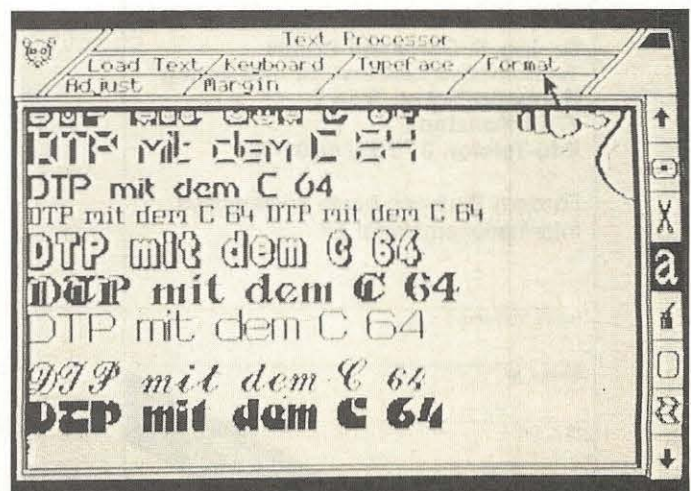 Text Processor
Load Text Keyboard Typeface Format
Adjust Margin
DTP mit dem C 64
DTP mit dem C 64
DTP mit dem C 64
DTP mit dem C 64 DTP mit dem C 64
DTP mit dem C 64
DTP mit dem C 64
DTP mit dem C 64
DTP mit dem C 64
DTP mit dem C 64
a